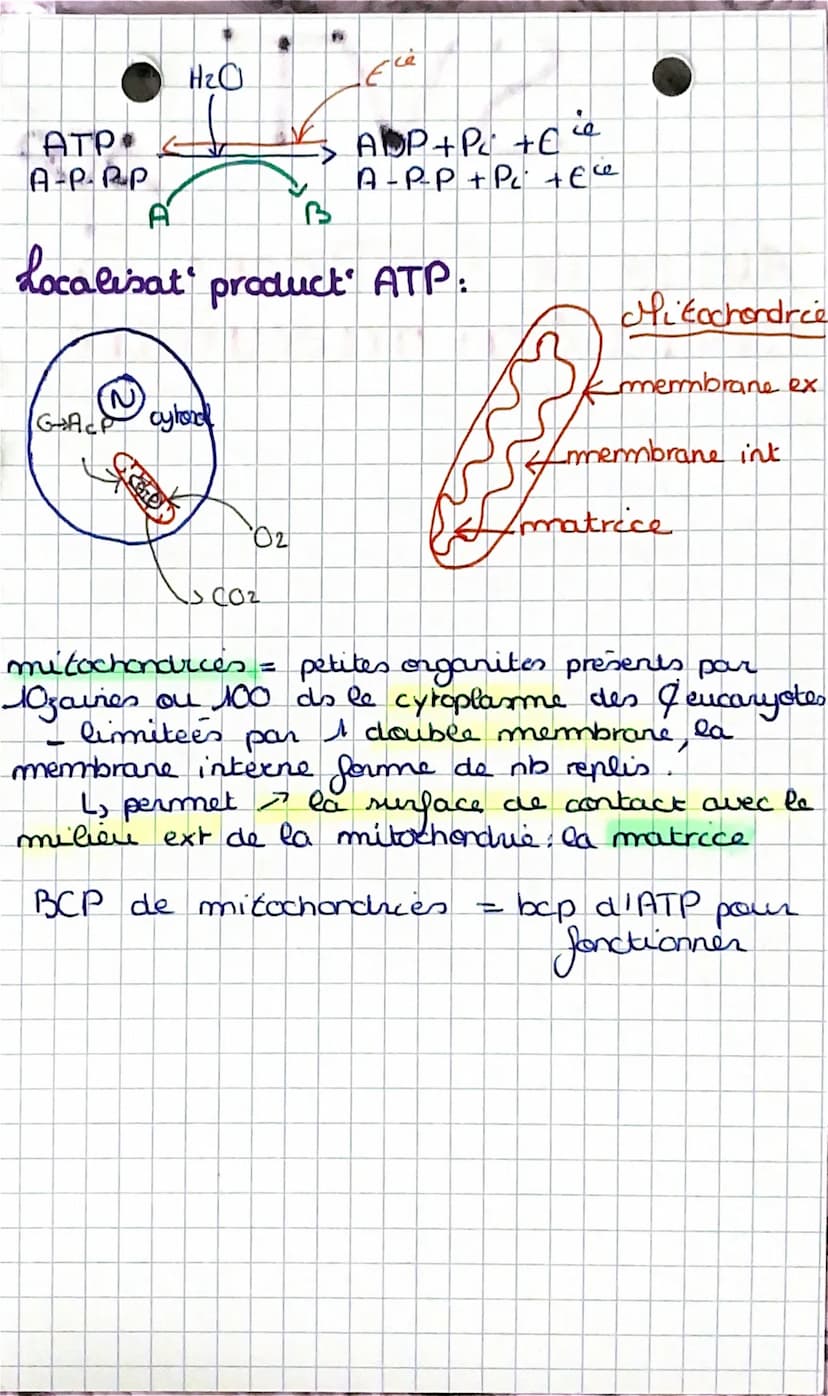 H2O
E ie
ATP
ADP + Pi + E ie
A-P-P-P
A-P-P + Pi + E ie
A
B
Localisat° product° ATP :
Mitochondrie
N
membrane ex
G→AcP
cytosol
membrane int
matrice
O2
CO2
mitochondries = petites organites présents par
10zaines ou 100 ds le cytoplasme des ¢ eucaryotes
- limiteés par 1 double membrane, la
membrane interne forme de nb replis.
↳ permet ↗ la surface de contact avec le
milieu ext de la mitochondrie : la matrice
BCP de mitochondries = bcp d'ATP pour
fonctionner